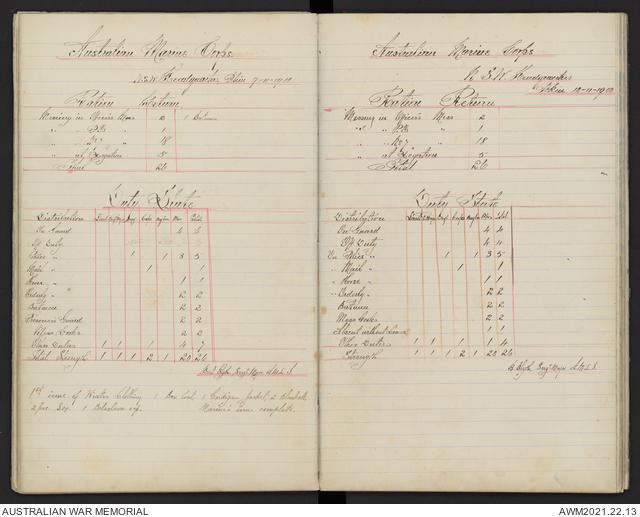 Australian Marine Corps
N.S.W. Headquarters Pekin 9-11-1900
Ration Return
Messing in Officers Mess 2 1 Batman
" " P.O. 1
" " No 7 18
" at Legation 5
Total 26
Duty State
Distribution Total
On Guard 4
Off Duty
Police " 1 1 3 5
Mail " 1 1
Horse " 1 1
Orderly " 2 2
Batmen 2 2
Prisoners Guard 2 2
Mess Cooks 2 2
Other Duties 1 1 1 4 7
Total Strength 1 1 1 2 1 20 26
Sergt Major
1st issue of Winter Clothing 1 Box 1 Cardigan Jacket 2 Blankets
2 prs Sox 1 Balaclava cap. Marines issue complete.
Australian Marine Corps
N.S.W. Headquarters
Pekin 10-11-1900
Ration Return
Messing in Officers Mess 2
" " P.O. 1
" " No 7 18
" at Legation 5
Total 26
Duty State
Distribution Total
On Guard 4 4
Off Duty 4 4
On Police " 1 1 3 5
" Mail " 1 1
" Horse " 1 1
" Orderly " 2 2
Batmen 2 2
Mess Cooks 2 2
Absent without Leave 1 1
Other Duties 1 1 1 1 4
Strength 1 1 1 2 1 20 26
Sergt Major
AUSTRALIAN WAR MEMORIAL
AWM2021.22.13